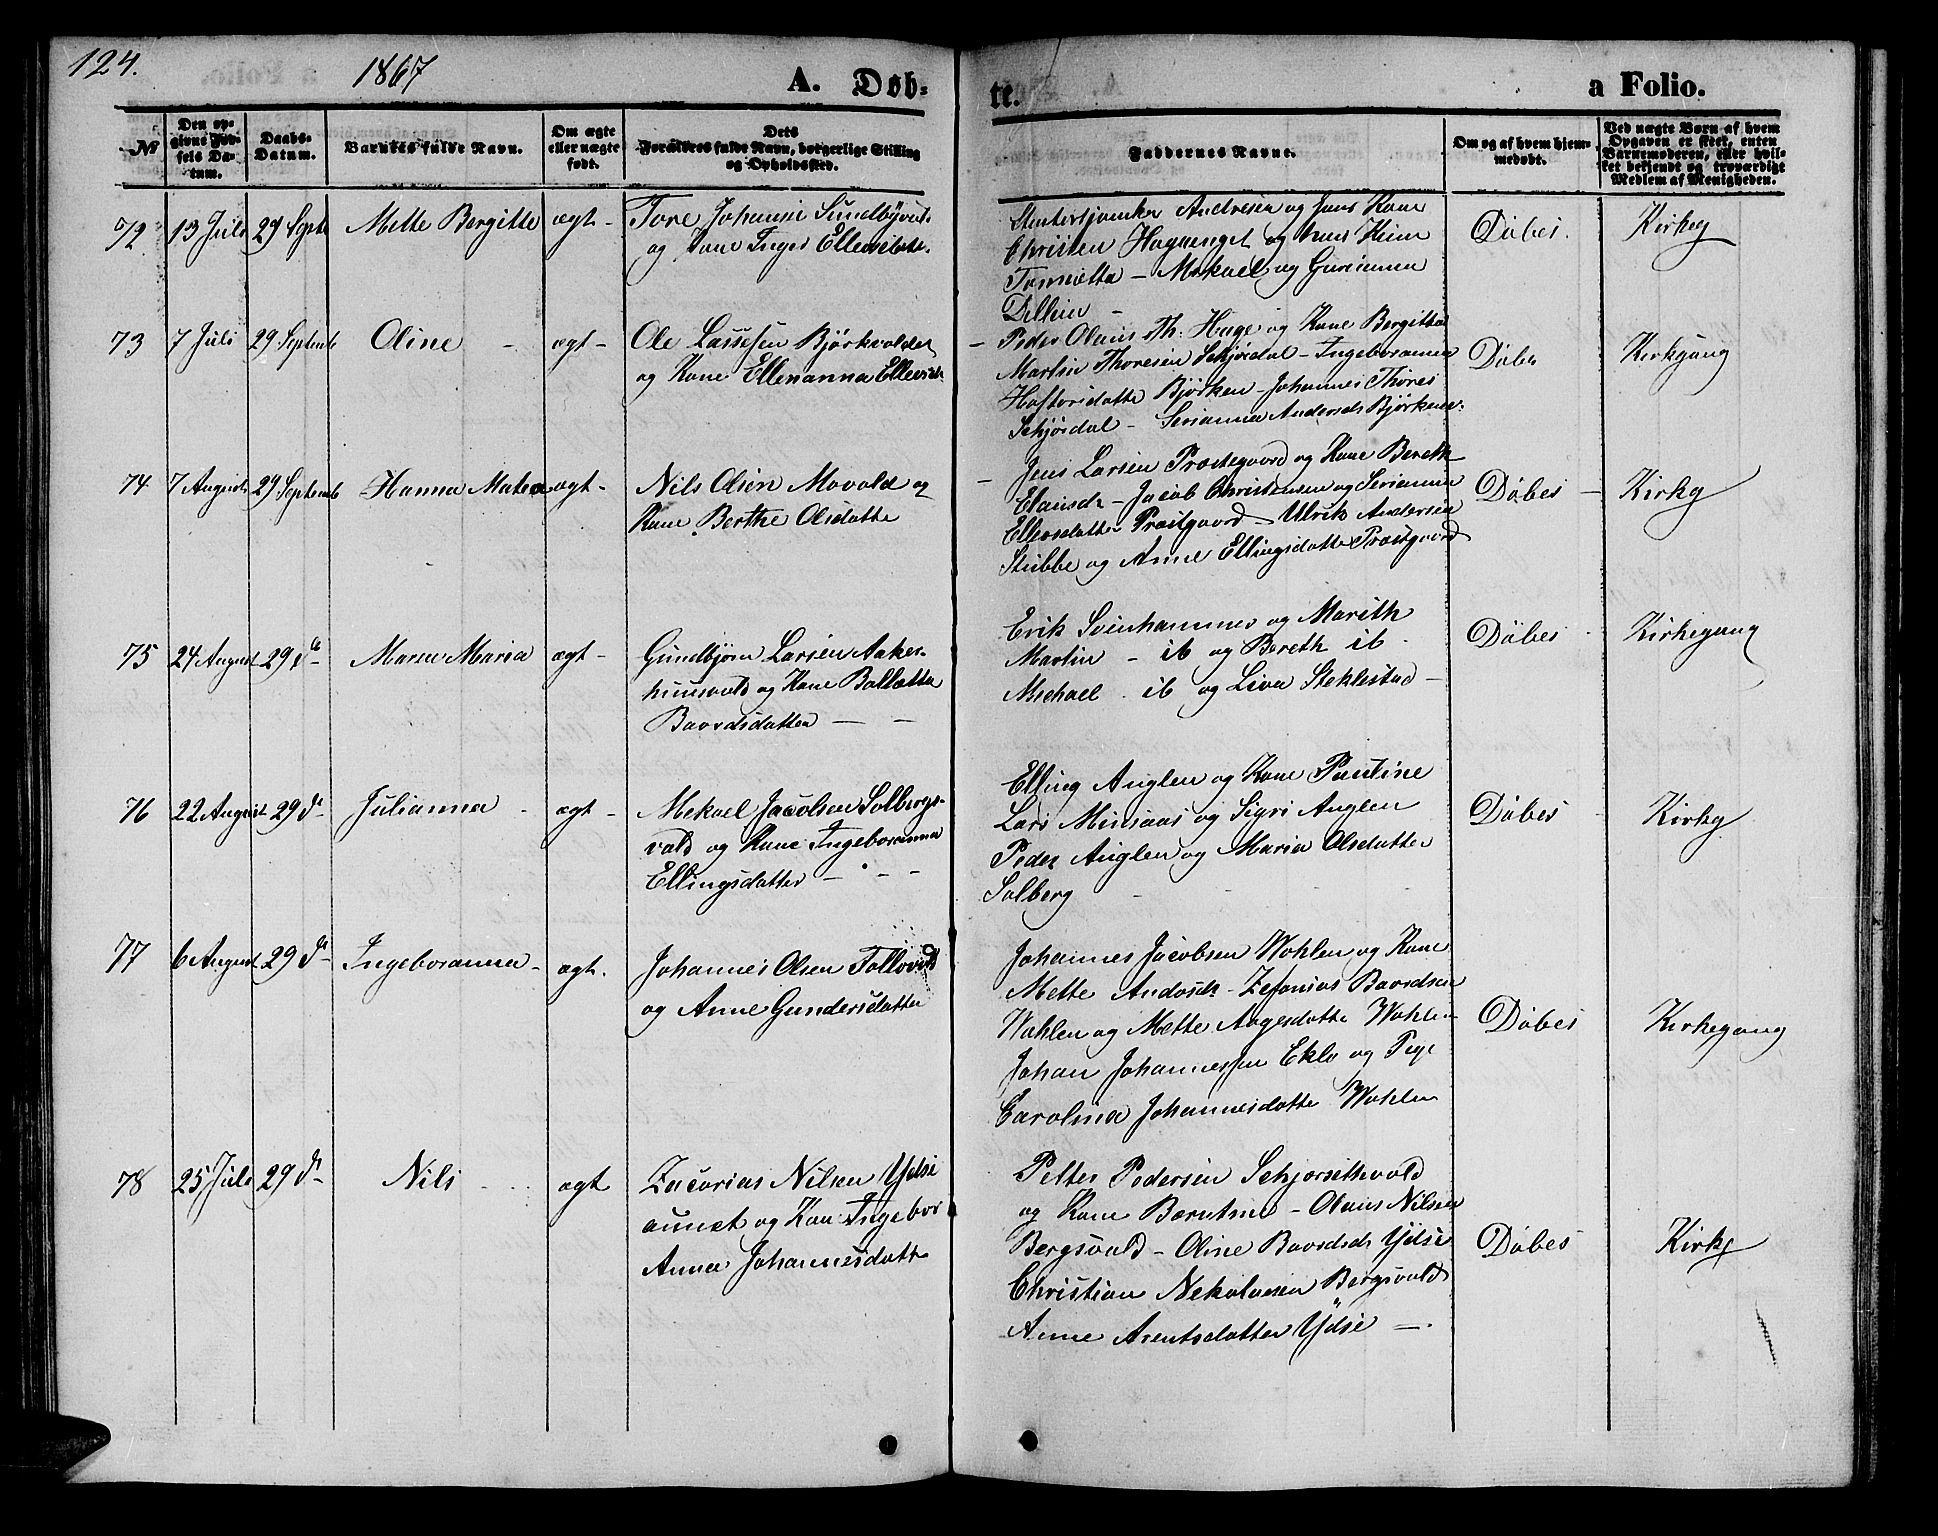 124.
1867
A. Døb-
te.
a Folio.
No
Den op-
givne Fød-
sels Da-
tum.
Daabs-
Datum.
Barnets fulde Navn.
Om ægte
eller uægte
født.
Dets
Forældres fulde Navn, borgerlige Stilling
og Opholdssted.
Faddernes Navne.
Om og af hvem hjem-
medøbt.
Ved uægte Børn af hvem
Opgaven er skeet, enten
Barnemoderen, eller hvil-
ket bekjendt og troværdigt
Medlem af Menigheden.
72 13 Juli 29 Septe Mette Bergitte ægt-
Tore Johannes
og Kone Inger
Andresen og hans Kone
Christen Hagaenget og hans Kone
- Mekael og
Døbes. Kirkeg
73 7 Juli 29 Septemb Oline - ægt-
Ole Lassesen Bjørkvolden
og Kone Ellenanna
- Peder Olaus Th: Hage og Kone Bergitta
Martin Thoresen Schjørdal - Ingeboranna
Haftorsdatte Bjørken - Johannes Thores
Schjørdal - Serianna Andersdr Bjørken
Døbe Kirkgang
74 7 August 29 Septemb Hanna Matea ægt-
Nils Olsen Movold og
Kone Berthe Olsdatte
- Jens Larsen Præstegaard og Kone Bereth
Elausdr - Jacob Christensen og Serianna
Ellevsdatter Præstgaard - Ulrik Andersen
Stubbe og Anne Ellingsdatte Præstgaard
Døbes - Kirkg
75 24 August 29 do Maren Maria ægt-
Gundbjørn Larsen Aaker-
huusvold og Kone Ballætta
Baardsdatter - -
Erik Svinhammer og Marith
Martin - ib og Bereth ib
Michael - ib og Liva Steklestad -
Døbes Kirkegang
76 22 August 29 do Julianna - ægt-
Mekael Jacobsen Solbergs-
vald og Kone Ingeboranna
Ellingsdatter - - -
Elling Auglen og Kone Pauline
Lars Minsaas og Sigri Auglen
Peder Auglen og Maria Olsdatter
Solberg
Døbes Kirkg
77 6 August 29 do Ingeboranna - ægt.
Johannes Olsen
og Anne Gundersdatte
Johannes Jacobsen Wohlen og Kone
Mette Andosdr - Zefanias Baardsen
Wohlen og Mette Aagesdatte Wohlen
Johan Johannessen Eklo og Pige
Carolina Johannesdatte Wohlen
Døbes Kirkegang
78 25 Juli 29 do Nils - ægt
Zacarias Nilsen Ydse
aunet og Kone Ingebor
Anna Johannesdatte
Petter Pedersen
og Kone Berntine - Olaus Nilsen
Bergsvald - Oline Baardsdr Ydse
Christian Nekolaisen Bergsvald
Anne Arentsdatter Ydse -.
Døbes Kirkg